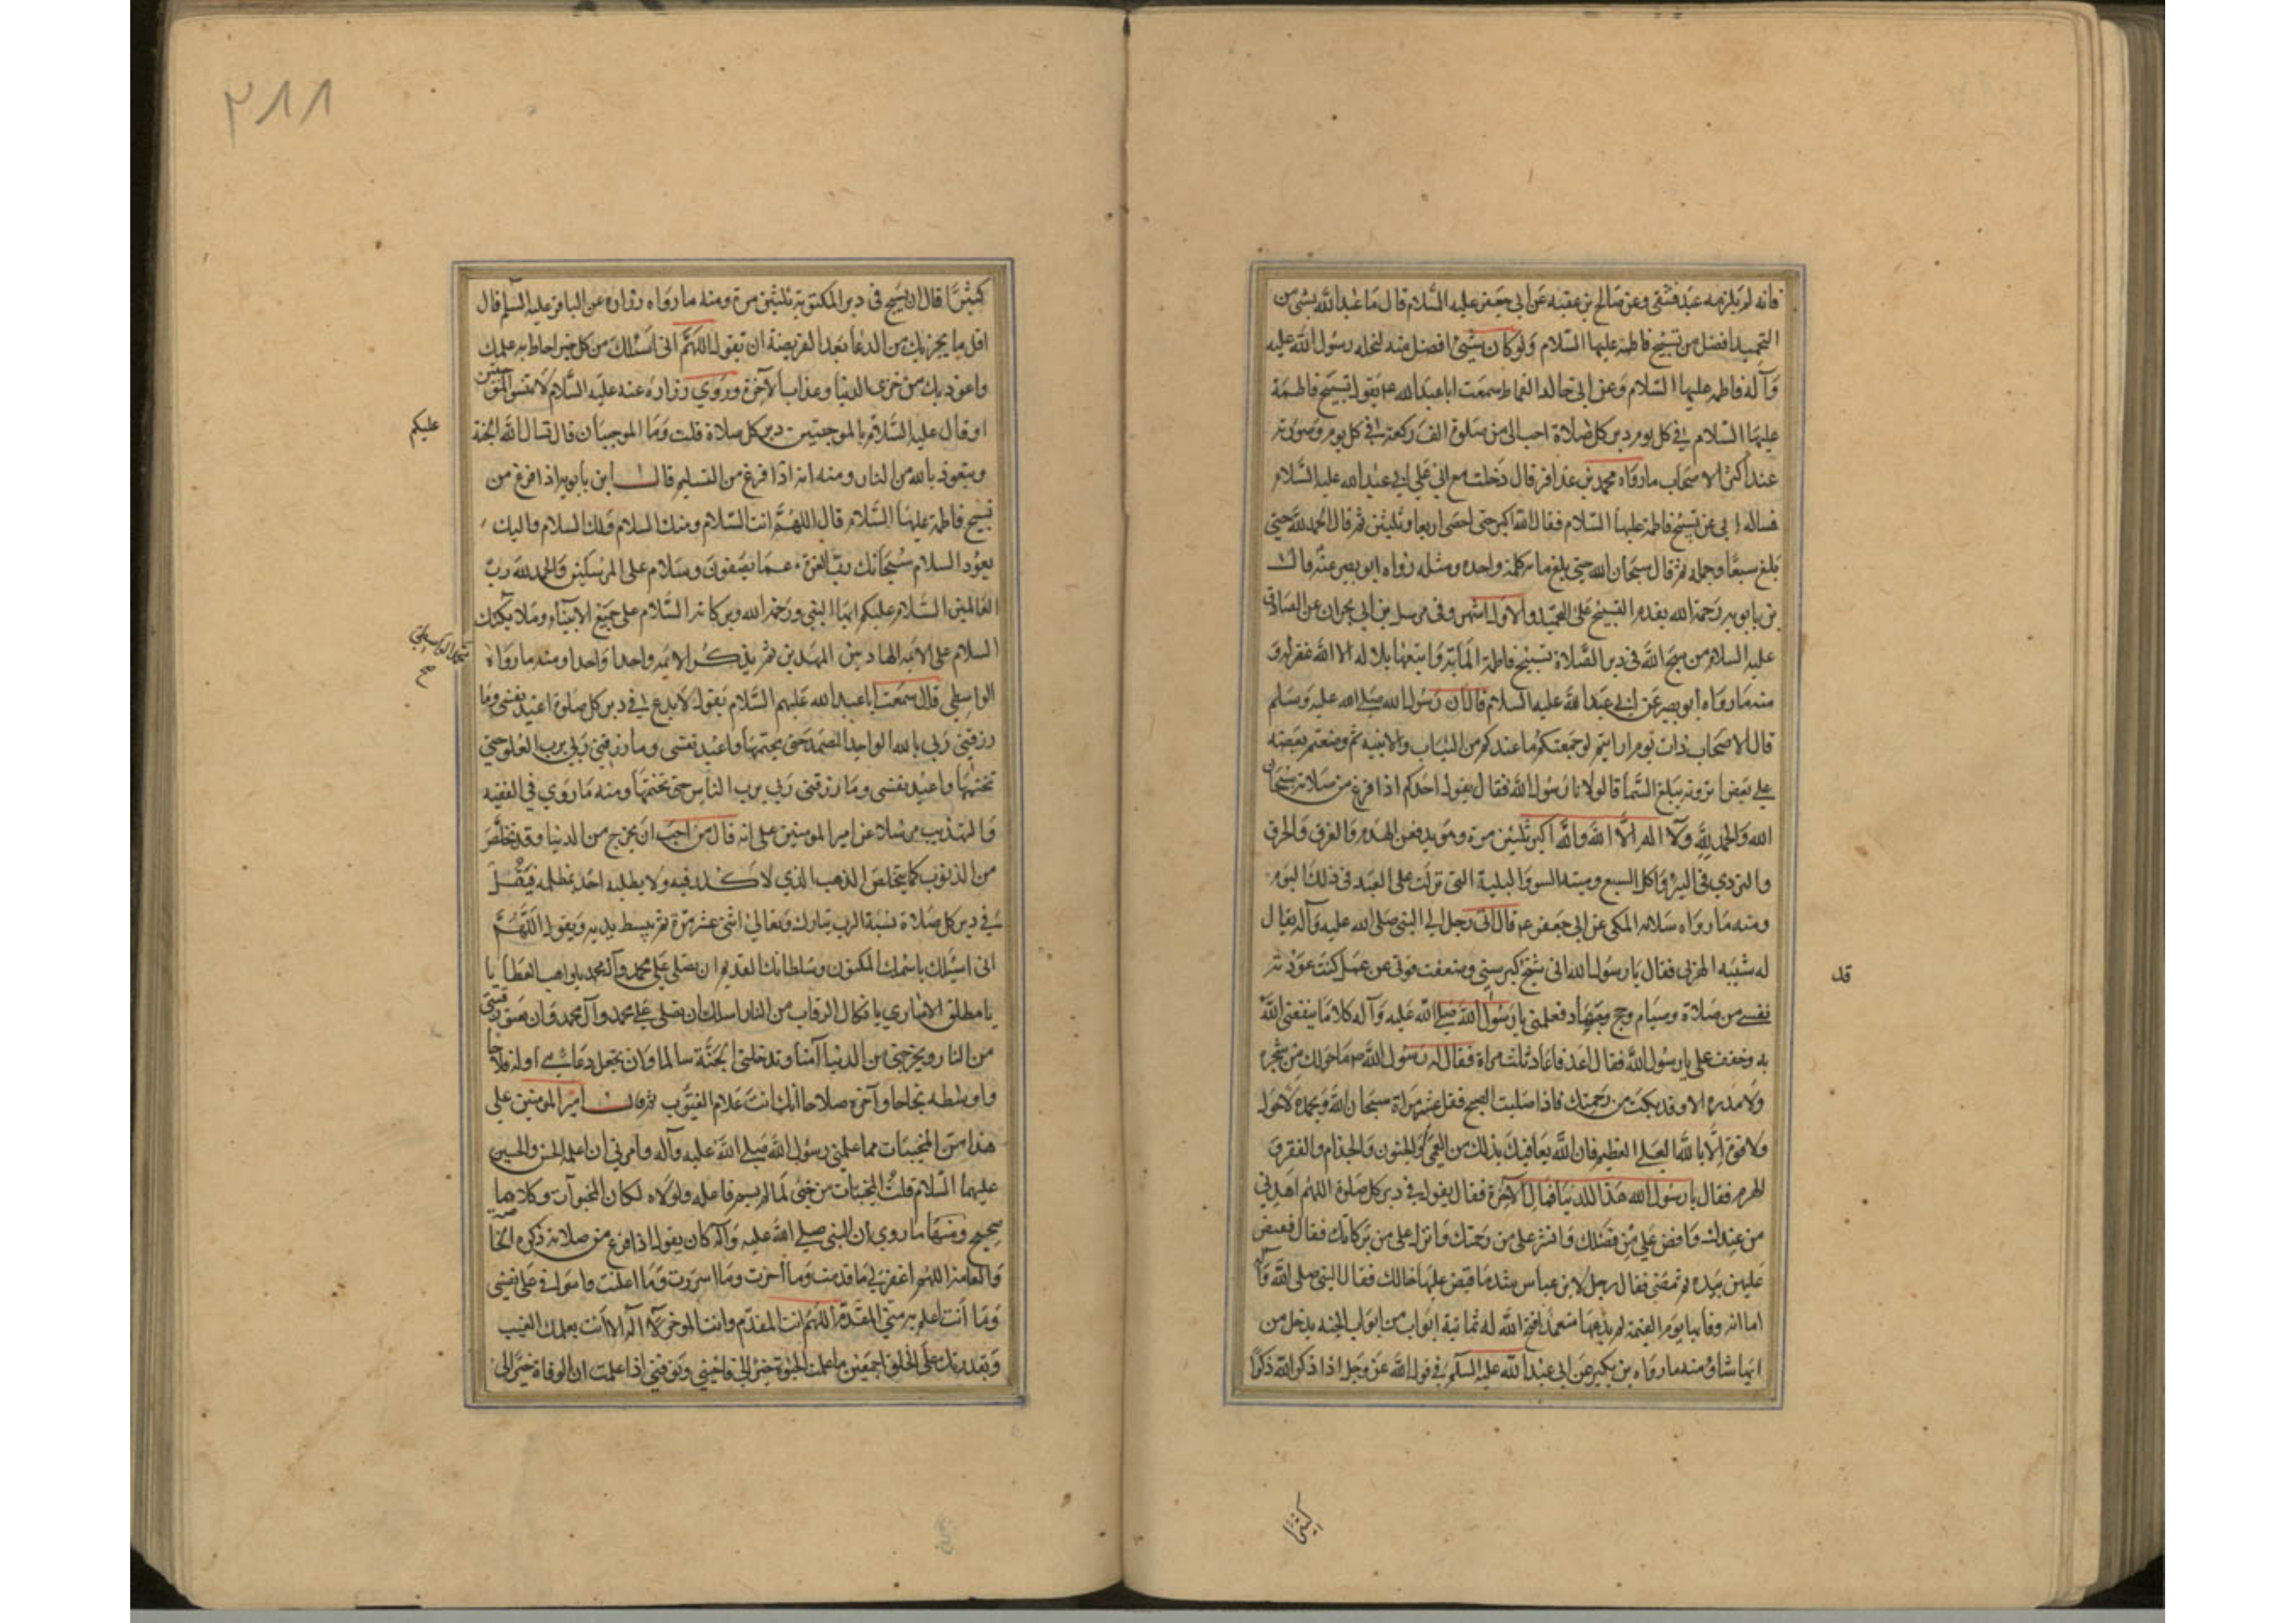 فانه لم يلزمه عبد فشقى وعن صالح بن عقبه عن ابي جعفر عليه السلام قال ما عبد الله بشى من
التحميد افضل من تسبيح فاطمه عليها السلام ولو كان شيئ افضل منه لنحله رسول الله عليه
وآله فاطمه عليها السلام وعن ابى خالد القماط سمعت ابا عبد الله ع يقول تسبيح فاطمة
عليها السلام في كل يوم دبر كل صلاة احب الى من صلوة الف ركعة في كل يوم وصورته
عند اكثر الاصحاب ما رواه محمد بن عذافر قال دخلت مع ابي على ابي عبد الله عليه السلام
فساله ابي عن تسبيح فاطمة عليها السلام فقال الله اكبر حتى احصى اربعا وثلثين ثم قال الحمد لله حتى
بلغ سبعا وجمله ثم قال سبحان الله حتى بلغ مائه كلمة واحده ومثله رواه ابو بصير عنه قال
بن بابويه رحمة الله يقدم التسبيح على التحميد والاول اشهر وفى مرسل بن ابي نجران عن الصادق
عليه السلام من سبح الله فى دبر الصلاة تسبيح فاطمة المأية واتبعها بلا له الا الله غفر له و
منه ما رواه ابو بصير عن ابي عبد الله عليه السلام قال ان رسول الله صلى الله عليه وسلم
قال لاصحاب ذات يوم ارايتم لو جمعتكم ما عندكم من الثياب والابنيه ثم وضعتم بعضه
على بعض ترونه يبلغ السمآ قالوا لا يا رسول الله فقال يقول احدكم اذا فرغ من صلاته سبحان
الله والحمد لله ولا اله الا الله والله اكبر ثلثين مرة وهو يدفعن الهدم والغرق والحرق
والتردي في البير واكل السبع وميتة السو والبلية التى نزلت على العبد فى ذلك اليوم
ومنه ما رواه سلام المكى عن ابى جعفر ع قال اتى رجل الى النبى صلى الله عليه وآله يقال
له شيبه الهزلى فقال يا رسول الله انى شيخ كبر سنى وضعفت قوتى عن عمل كنت عوذته
قد
نفسى من صلاة وصيام وحج وجهاد فعلمنى يا رسول الله صلى الله عليه وآله كلاما ينفعنى الله
به وخفف على يا رسول الله فقال اعد فاعاد ثلث مراة فقال له رسول الله ص ما حولك من شجرة
ولا مدره الا وقد بكت من رحمتك فاذا صليت الصبح فقل عشر مراة سبحان الله وبحمده لا حول
ولا قوة الا بالله العلى العظيم فان الله يعافيك بذلك من العمى والجنون والجذام والفقر و
الهرم فقال يا رسول الله هذا للدنيا فما للآخرة فقال يقول فى دبر كل صلوة اللهم اهدنى
من عندك وافض على من فضلك وانشر على من رحمتك وانزل على من بركاتك فقال فقبض
عليهن بيده ثم مضى فقال رجل لابن عباس ما اشد ما قبض عليها خالك فقال النبى صلى الله وآله
اما انه وفا بها يوم القيمة لم يدعها متعمدا فتح الله له ثمانية ابواب من ابواب الجنه يدخل من
ايها شاو منه ما رواه بن بكير عن ابى عبد الله عليه السلم فى قول الله عز وجل اذا ذكر الله ذكرا
كثيرا
٢٨٨
كثيرا قال ان يسبح فى دبر المكتوبة ثلثين مرة ومنه ما رواه زراره عن الباقر عليه السلم قال
اقل ما يجزيك من الدعا بعد الفريضة ان تقول اللهم انى اسئلك من كل خير احاط به علمك
واعوذ بك من خزى الدنيا وعذاب الآخرة وروي زراره عنه عليه السلام لا تنسو الموجبتين
عليكم
او قال عليه السلام بالموجبتين دبر كل صلاة قلت وما الموجبتان قال تسال الله الجنة
ويتعوذ بالله من النار ومنه انه اذا فرغ من التسليم قال ابن بابويه اذا فرغ من
تسبيح فاطمة عليها السلام قال اللهم انت السلام ومنك السلام ولك السلام واليك
يعود السلام سبحانك رب العزة عما يصفون وسلام على المرسلين والحمد لله رب
العالمين السلام عليكم ايها النبي ورحمة الله وبركاته السلام على جميع الانبياء وملائكتك
السلام على الائمه الهادين المهدين ثم يذكر الائمه واحدا واحدا ومنه ما رواه
الواسطى قال سمعت ابا عبد الله عليهم السلام يقول لا يدع فى دبر كل صلوة اعيذ نفسى وما
رزقنى ربى بالله الواحد الصمد حتى يختمها واعيذ نفسى وما رزقنى ربى برب الفلق حتى
تختمها واعيذ نفسى وما رزقنى ربى برب الناس حتى تختمها ومنه ما روي في الفقيه
والتهذيب مرسلا عن امير المومنين على انه قال من احب ان يخرج من الدنيا وقد تخلص
من الذنوب كما يتخلص الذهب الذي لا كدر فيه ولا يطلبه احد بمظلمه فيقل
فى دبر كل صلاة نسبة الرب تبارك وتعالى اثنى عشر مرة ثم يبسط يديه ويقول اللهم
انى اسئلك باسمك المكنون وسلطانك القديم ان تصلى على محمد وآل محمد يا واهب العطايا يا
يا مطلق الاسارى يا فكاك الرقاب من النار اسئلك ان تصلى على محمد وآل محمد وان تعتق رقبتى
من النار ويخرجنى من الدنيا آمنا وتدخلنى الجنة سالما وان تجعل دعاي اوله فلاحا
واوسطه نجاحا وآخره صلاحا انك انت علام الغيوب ثم قال امير المومنين على
هذا من المخبيات مما علمنى رسول الله صلى الله عليه وآله وامرنى ان اعلم الحسن والحسين
عليهما السلام قلت المخبيات من خبى لما لم يسم فاعله ولولاه لكان المخبوآت وكلاهما
صحيح ومنها ما روي ان النبى صلى الله عليه وآله كان يقول اذا فرغ من صلاته ذكره الخا
والعامة اللهم اغفر لى ما قدمت وما اخرت وما اسررت وما اعلنت واسرافى على نفسى
وما انت اعلم به منى المقدم اللهم انت المقدم وانت الموخر لا اله الا انت بعلمك الغيب
وبقدرتك على الخلق اجمعين ما علمت الحيوة خيرا لى فاحينى وتوفنى اذا علمت ان الوفاة خيرا لى